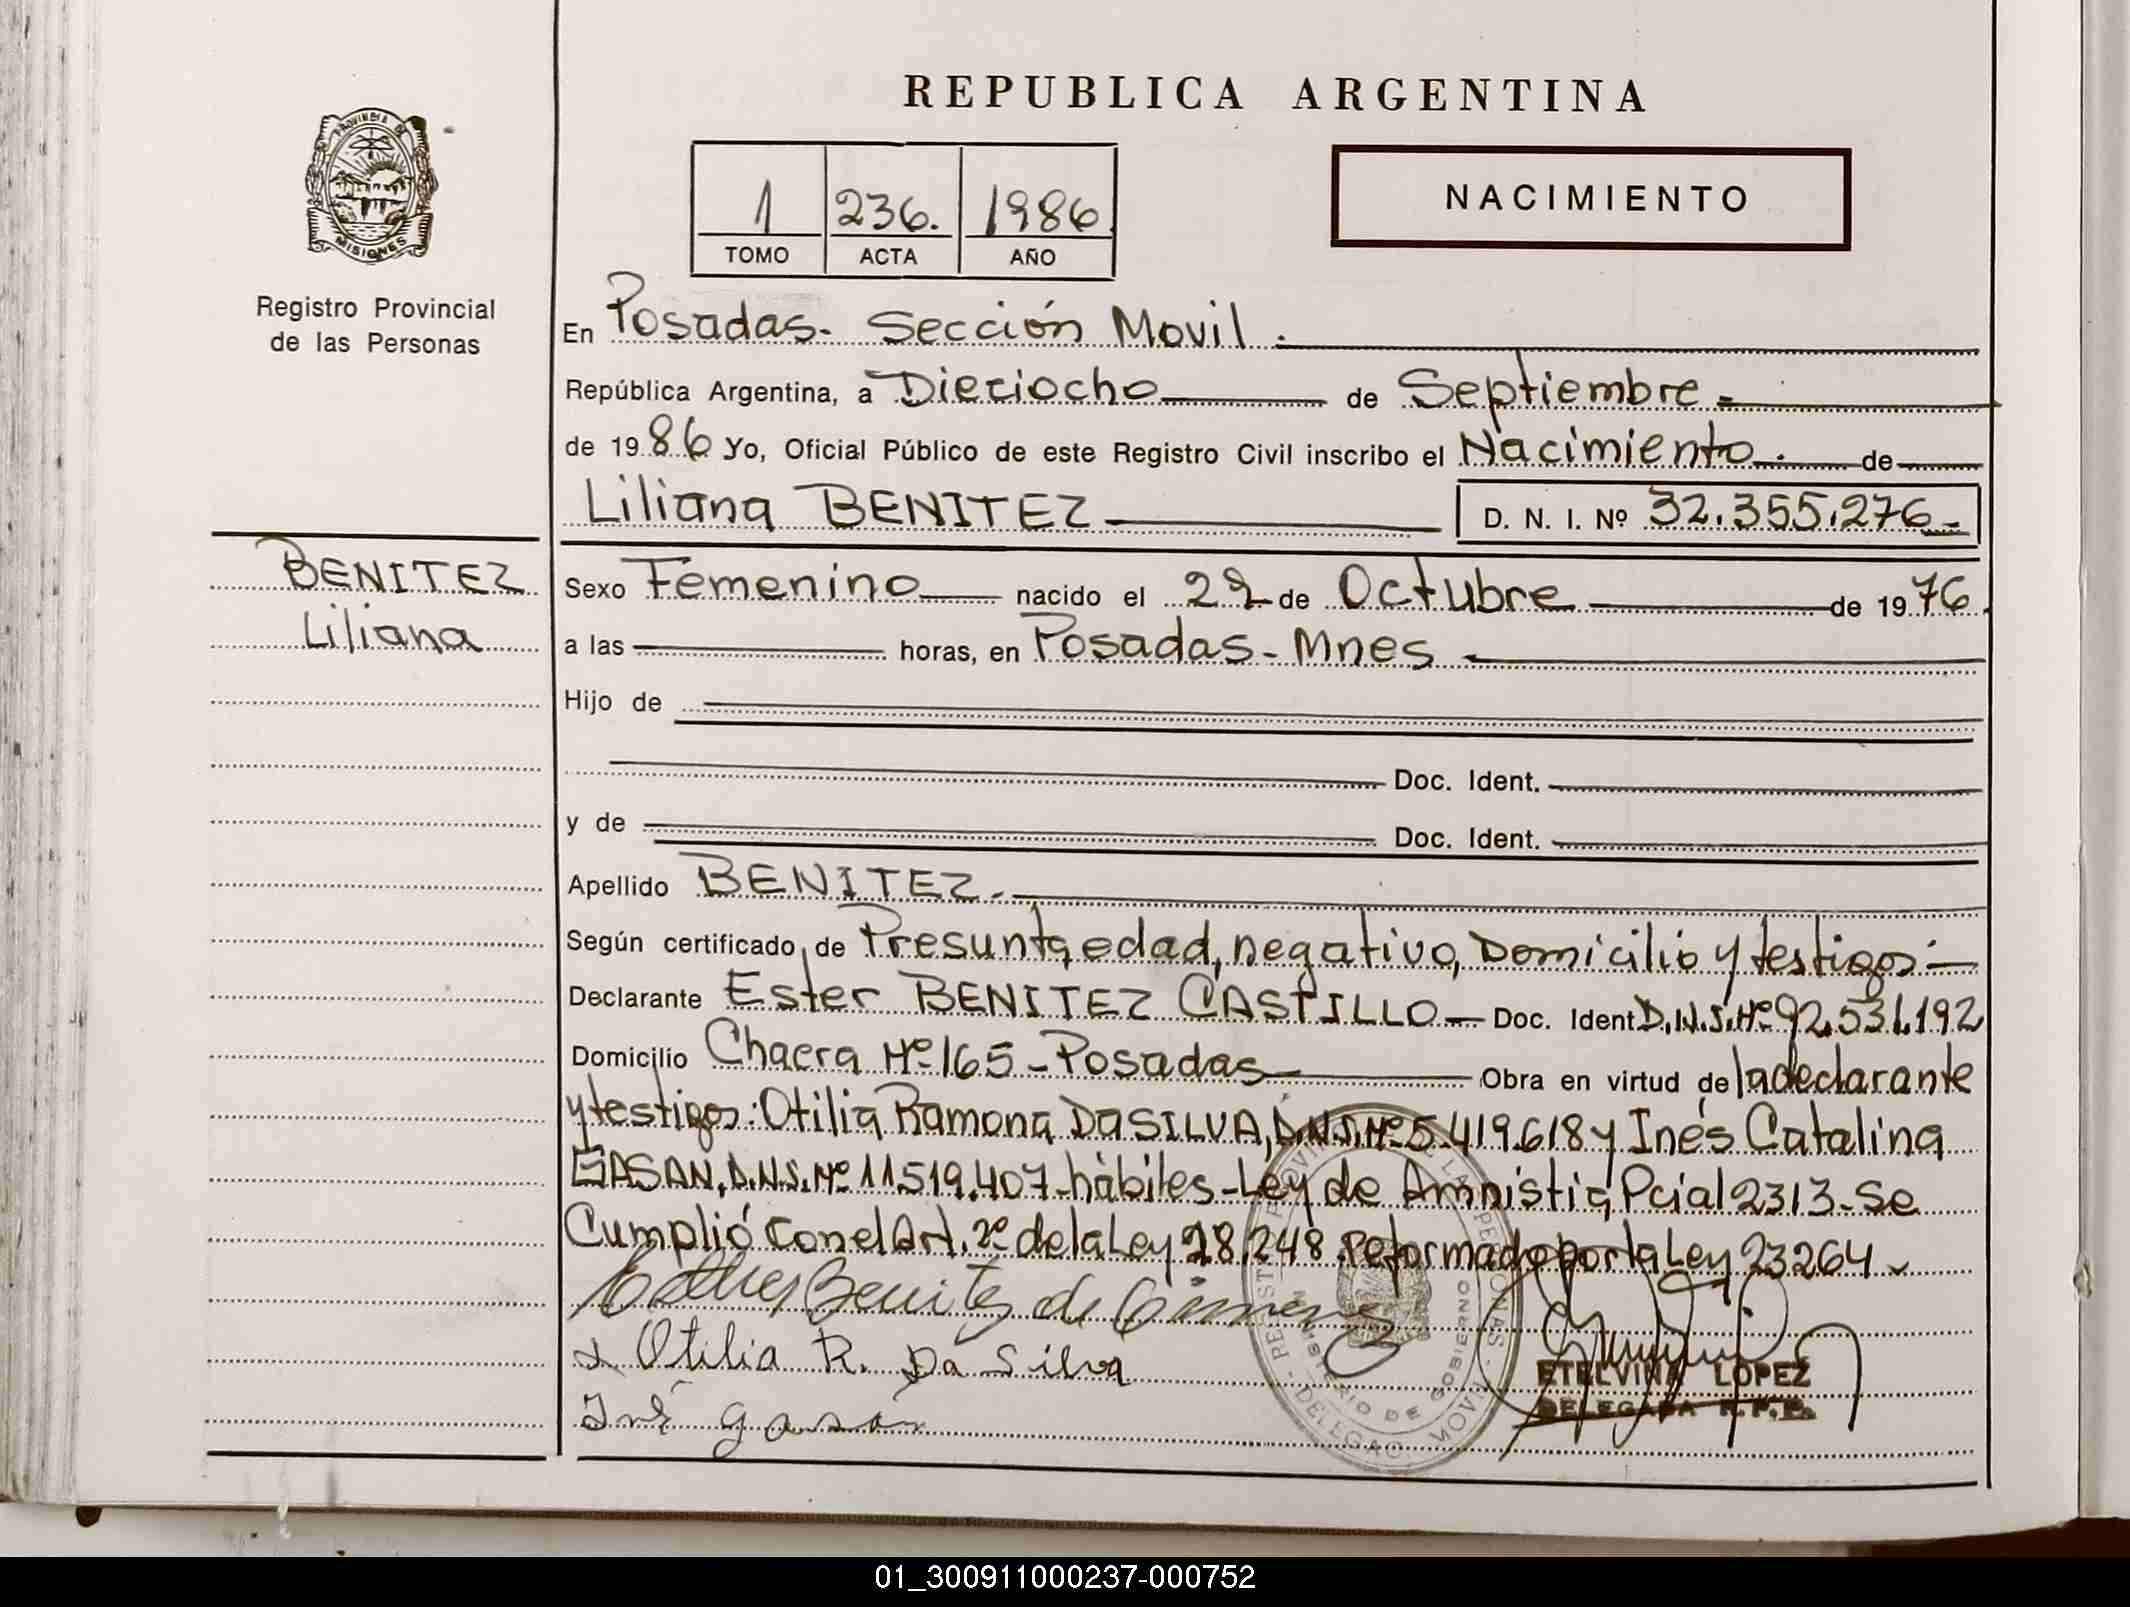 REPUBLICA ARGENTINA
PROVINCIA DE
MISIONES
Registro Provincial
de las Personas
1 236. 1986
TOMO ACTA AÑO
NACIMIENTO
En Posadas. Sección Movil.
República Argentina, a Dieciocho de Septiembre.
de 1986 Yo, Oficial Público de este Registro Civil inscribo el Nacimiento. de
Liliana BENITEZ D. N. I. Nº 32.355.276
BENITEZ
Liliana
Sexo Femenino nacido el de Octubre de 1976.
a las horas, en Posadas - Mnes
Hijo de
Doc. Ident.
y de Doc. Ident.
Apellido BENITEZ.
Según certificado, de Presunta edad, negativo, Domicilio y testigos.
Declarante Ester BENITEZ CASTILLO Doc. Ident D.N.I. Nº 92.531.192
Domicilio Chacra Nº 165 - Posadas Obra en virtud de la declarante
y testigos: Otilia Ramona Da SILVA, D.N.I. Nº 5.419.618 y Inés Catalina
GASAN, D.N.I. Nº 11.519.407 - hábiles - Ley de Amnistia Pcial 2313 - Se
Cumplió con el Art. 2º de la Ley 18.248 Reformado por la Ley 23264
Esther Benitez de
Otilia R. Da Silva
Iné gasan
ETELVINA LOPEZ
DELEGADA R.P.P.
MINISTERIO DE GOBIERNO
01_300911000237-000752